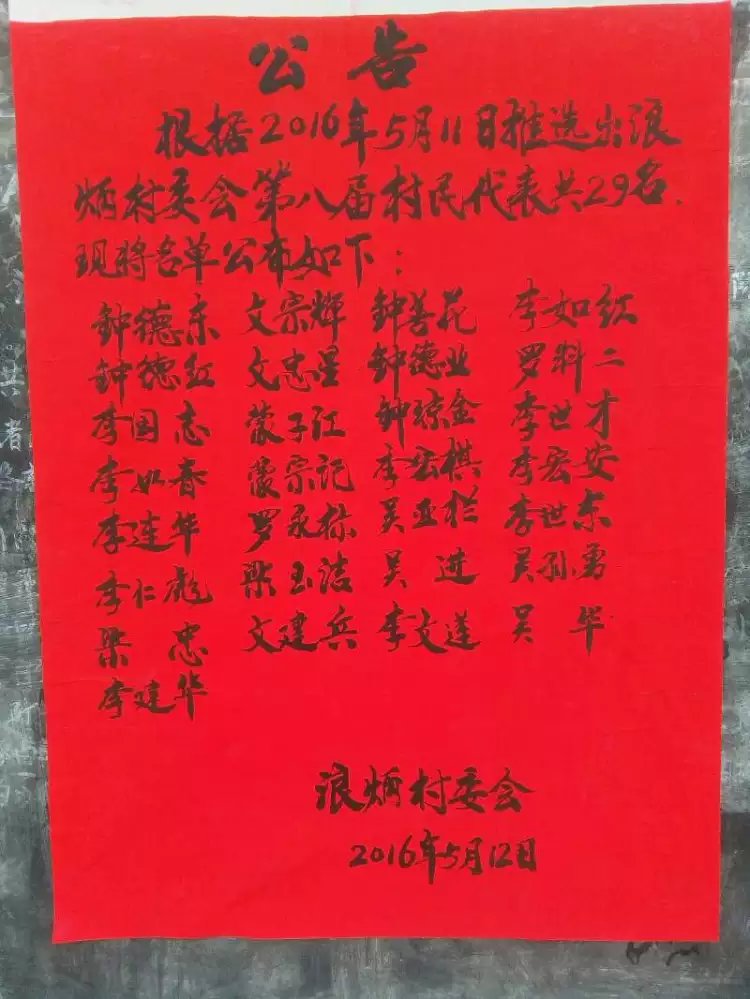 公告
根据2016年5月11日推选出浪
炳村委会第八届村民代表共29名.
现将名单公布如下:
钟德东 文宗辉 钟善花 李如红
钟德红 文忠星 钟德业 罗料二
李国志 蒙子江 钟琼金 李世才
李如春 蒙宗记 李宏棋 李宏安
李连华 罗永标 吴亚栏 李世东
李仁彪 梁玉洁 吴进 吴孙勇
梁忠 文建兵 李文莲 吴华
李建华
浪炳村委会
2016年5月12日